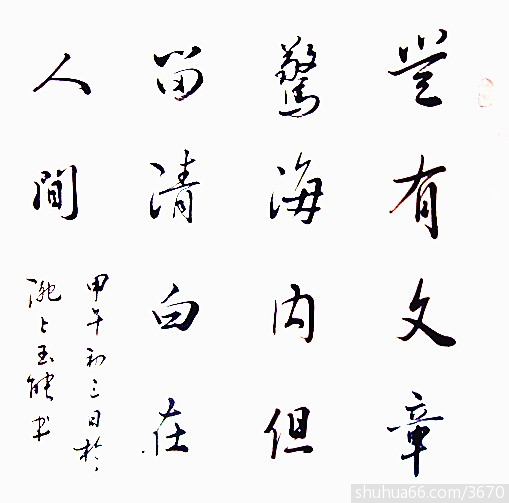 豈有文章
驚海内但
留清白在
人間
甲午初三日於
上玉能书
shuhua66.com/3670